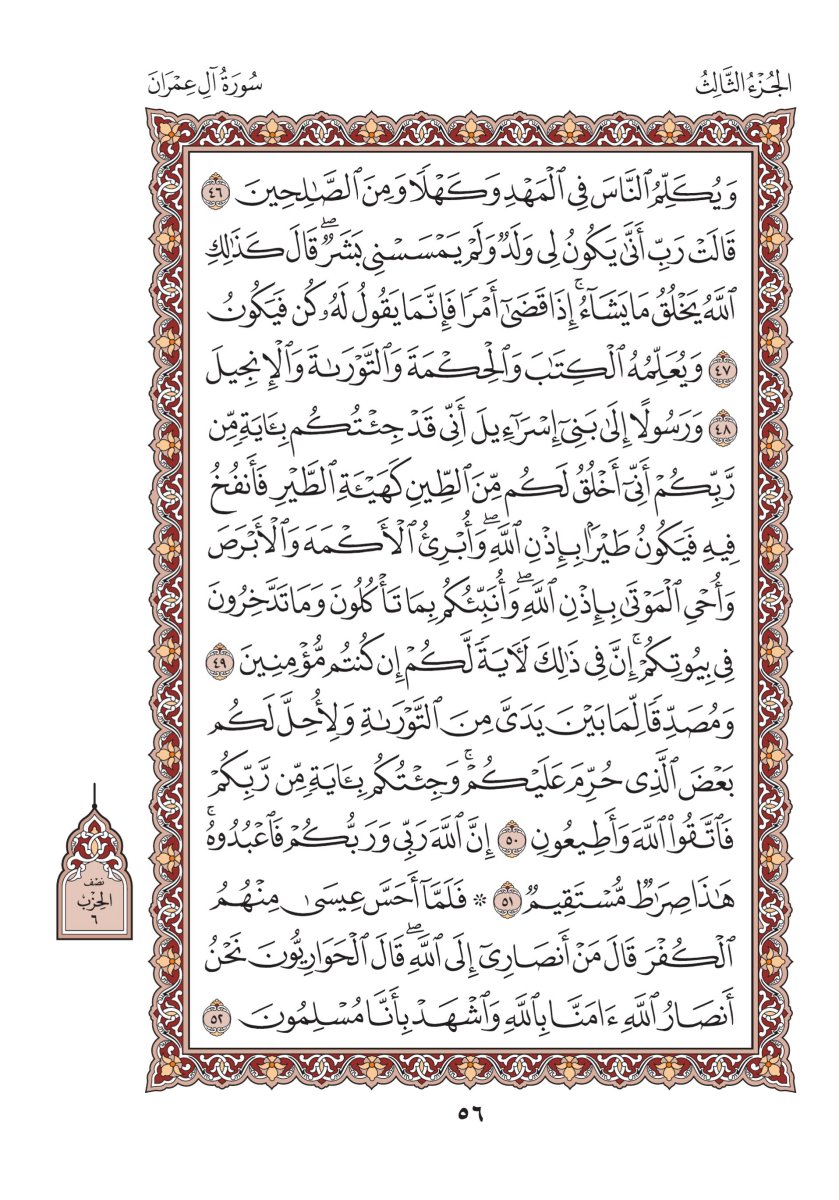 الجُزْءُ الثَّالِثُ
سُورَةُ آلِ عِمْرَانَ
وَيُكَلِّمُ ٱلنَّاسَ فِي ٱلْمَهْدِ وَكَهْلًا وَمِنَ ٱلصَّٰلِحِينَ ٤٦
قَالَتْ رَبِّ أَنَّىٰ يَكُونُ لِي وَلَدٌ وَلَمْ يَمْسَسْنِي بَشَرٌۖ قَالَ كَذَٰلِكِ
ٱللَّهُ يَخْلُقُ مَا يَشَآءُۚ إِذَا قَضَىٰٓ أَمْرًا فَإِنَّمَا يَقُولُ لَهُۥ كُن فَيَكُونُ
٤٧ وَيُعَلِّمُهُ ٱلْكِتَٰبَ وَٱلْحِكْمَةَ وَٱلتَّوْرَىٰةَ وَٱلْإِنجِيلَ
٤٨ وَرَسُولًا إِلَىٰ بَنِيٓ إِسْرَٰٓءِيلَ أَنِّي قَدْ جِئْتُكُم بِـَٔايَةٍ مِّن
رَّبِّكُمْ أَنِّيٓ أَخْلُقُ لَكُم مِّنَ ٱلطِّينِ كَهَيْـَٔةِ ٱلطَّيْرِ فَأَنفُخُ
فِيهِ فَيَكُونُ طَيْرًۢا بِإِذْنِ ٱللَّهِۖ وَأُبْرِئُ ٱلْأَكْمَهَ وَٱلْأَبْرَصَ
وَأُحْيِ ٱلْمَوْتَىٰ بِإِذْنِ ٱللَّهِۖ وَأُنَبِّئُكُم بِمَا تَأْكُلُونَ وَمَا تَدَّخِرُونَ
فِي بُيُوتِكُمْۚ إِنَّ فِي ذَٰلِكَ لَأٓيَةً لَّكُمْ إِن كُنتُم مُّؤْمِنِينَ ٤٩
وَمُصَدِّقًا لِّمَا بَيْنَ يَدَيَّ مِنَ ٱلتَّوْرَىٰةِ وَلِأُحِلَّ لَكُم
بَعْضَ ٱلَّذِي حُرِّمَ عَلَيْكُمْۚ وَجِئْتُكُم بِـَٔايَةٍ مِّن رَّبِّكُمْ
فَٱتَّقُوا۟ ٱللَّهَ وَأَطِيعُونِ ٥٠ إِنَّ ٱللَّهَ رَبِّي وَرَبُّكُمْ فَٱعْبُدُوهُۚ
هَٰذَا صِرَٰطٌ مُّسْتَقِيمٌ ٥١ ۞ فَلَمَّآ أَحَسَّ عِيسَىٰ مِنْهُمُ
ٱلْكُفْرَ قَالَ مَنْ أَنصَارِيٓ إِلَى ٱللَّهِۖ قَالَ ٱلْحَوَارِيُّونَ نَحْنُ
أَنصَارُ ٱللَّهِ ءَامَنَّا بِٱللَّهِ وَٱشْهَدْ بِأَنَّا مُسْلِمُونَ ٥٢
نصف
الحِزْبُ
٦
٥٦